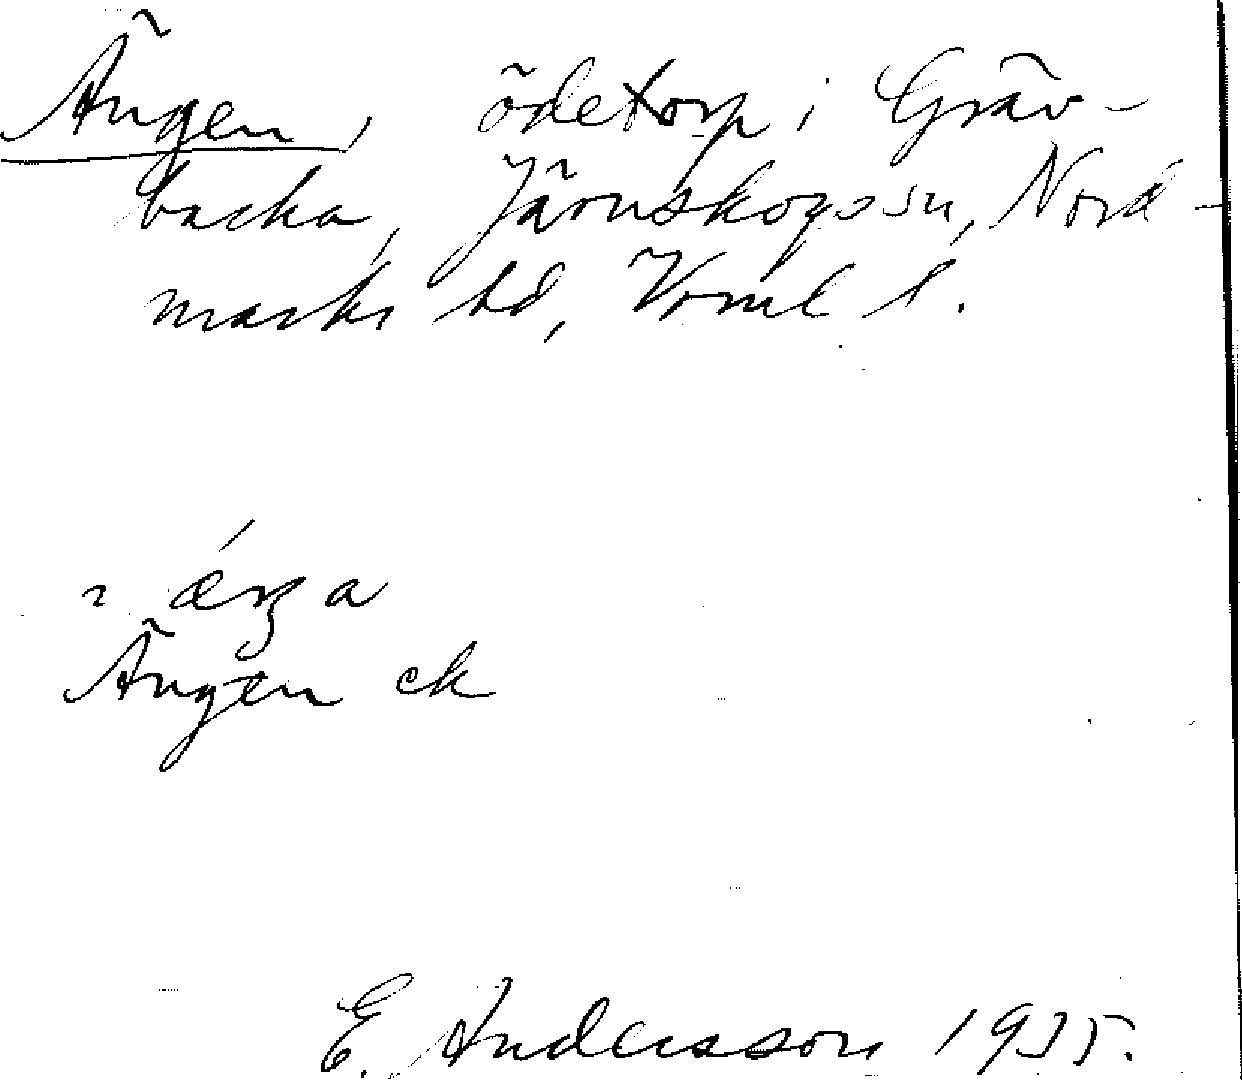 Ängen, ödetorp i Gräv-
backa, Järnskogs sn, Nord-
marks hd, Vrml l.
Ängen ek
E. Andersson 1935.